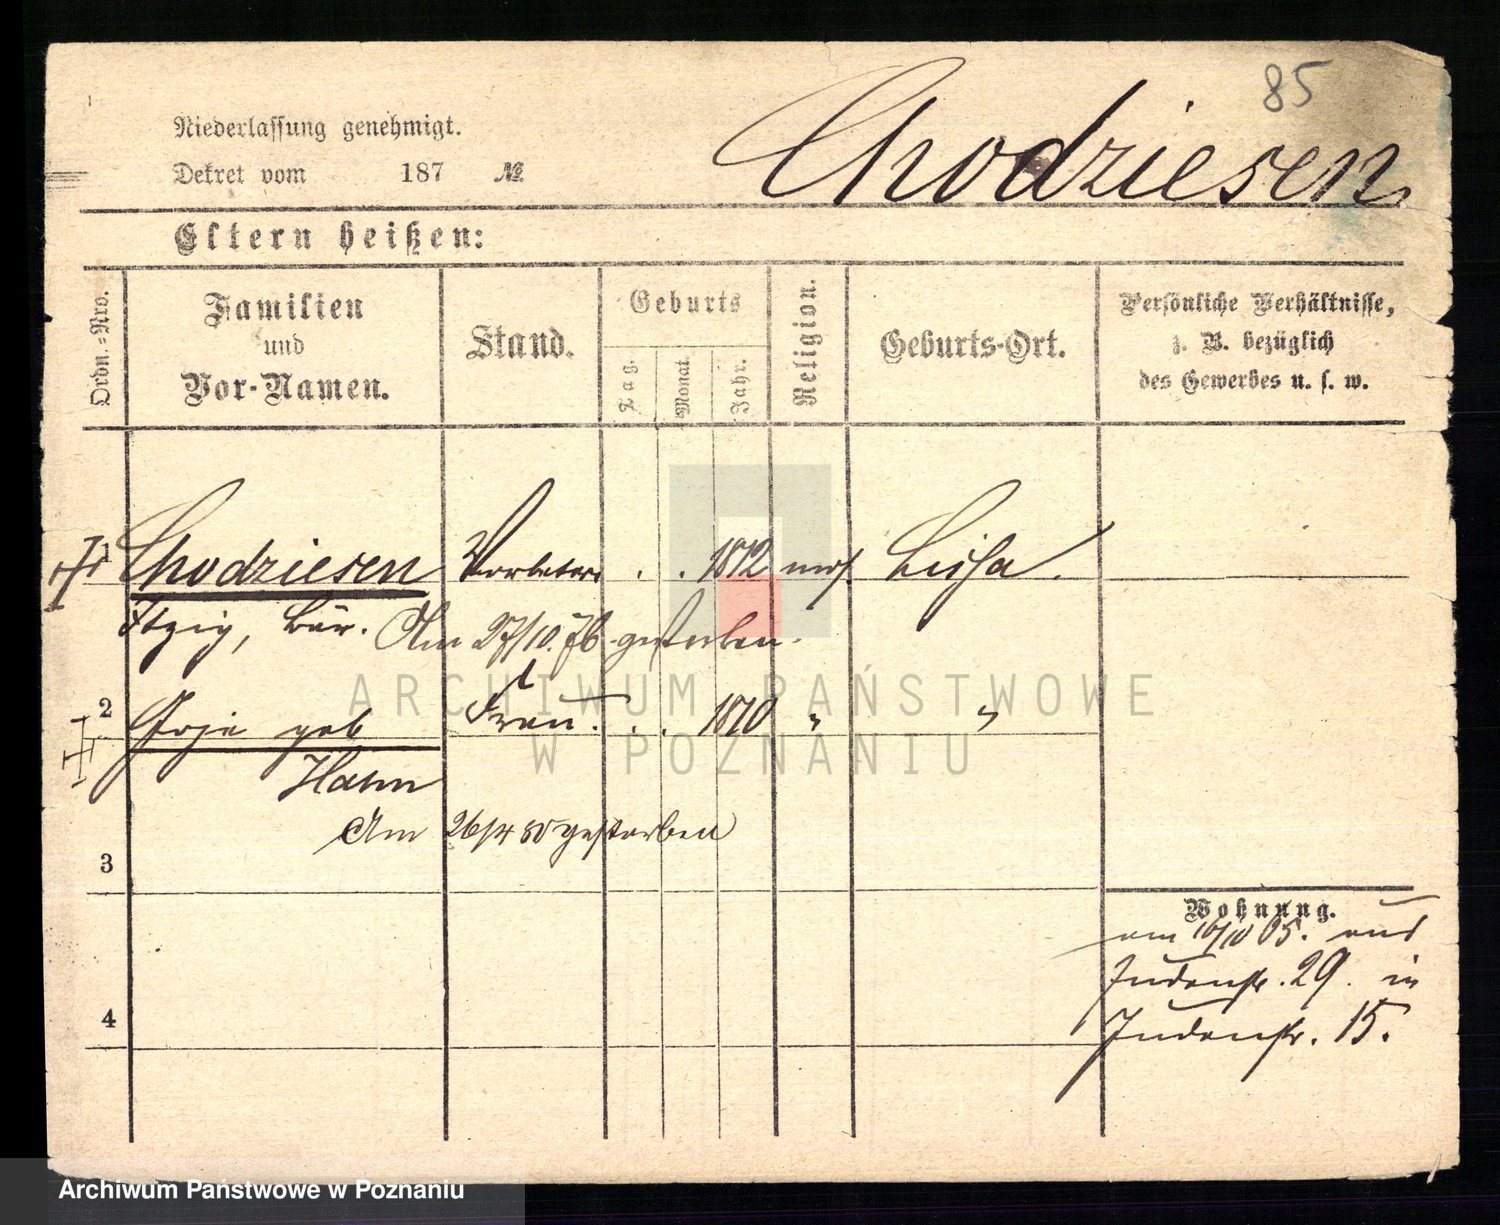 85
Chodziesen
Niederlassung genehmigt.
Dekret vom 187 №
Eltern heißen:
Ordn.-Nro.
Familien
und
Vor-Namen.
Stand.
Geburts
Tag.
Monat.
Jahr.
Religion.
Geburts-Ort.
Persönliche Verhältnisse,
z. B. bezüglich
des Gewerbes u. s. w.
1 Chodziesen Vorbeter . . 1812 mos. Lissa.
Itzig, Bär. Am 27/10.76 gestorben.
ARCHIWUM PAŃSTWOWE
W POZNANIU
2 geb Frau . . 1810 " "
Hahn
Am 26/4 80 gestorben
3
Wohnung.
am 10/10 65. aus
Judenstr. 29. in
Judenstr. 15.
4
Archiwum Państwowe w Poznaniu